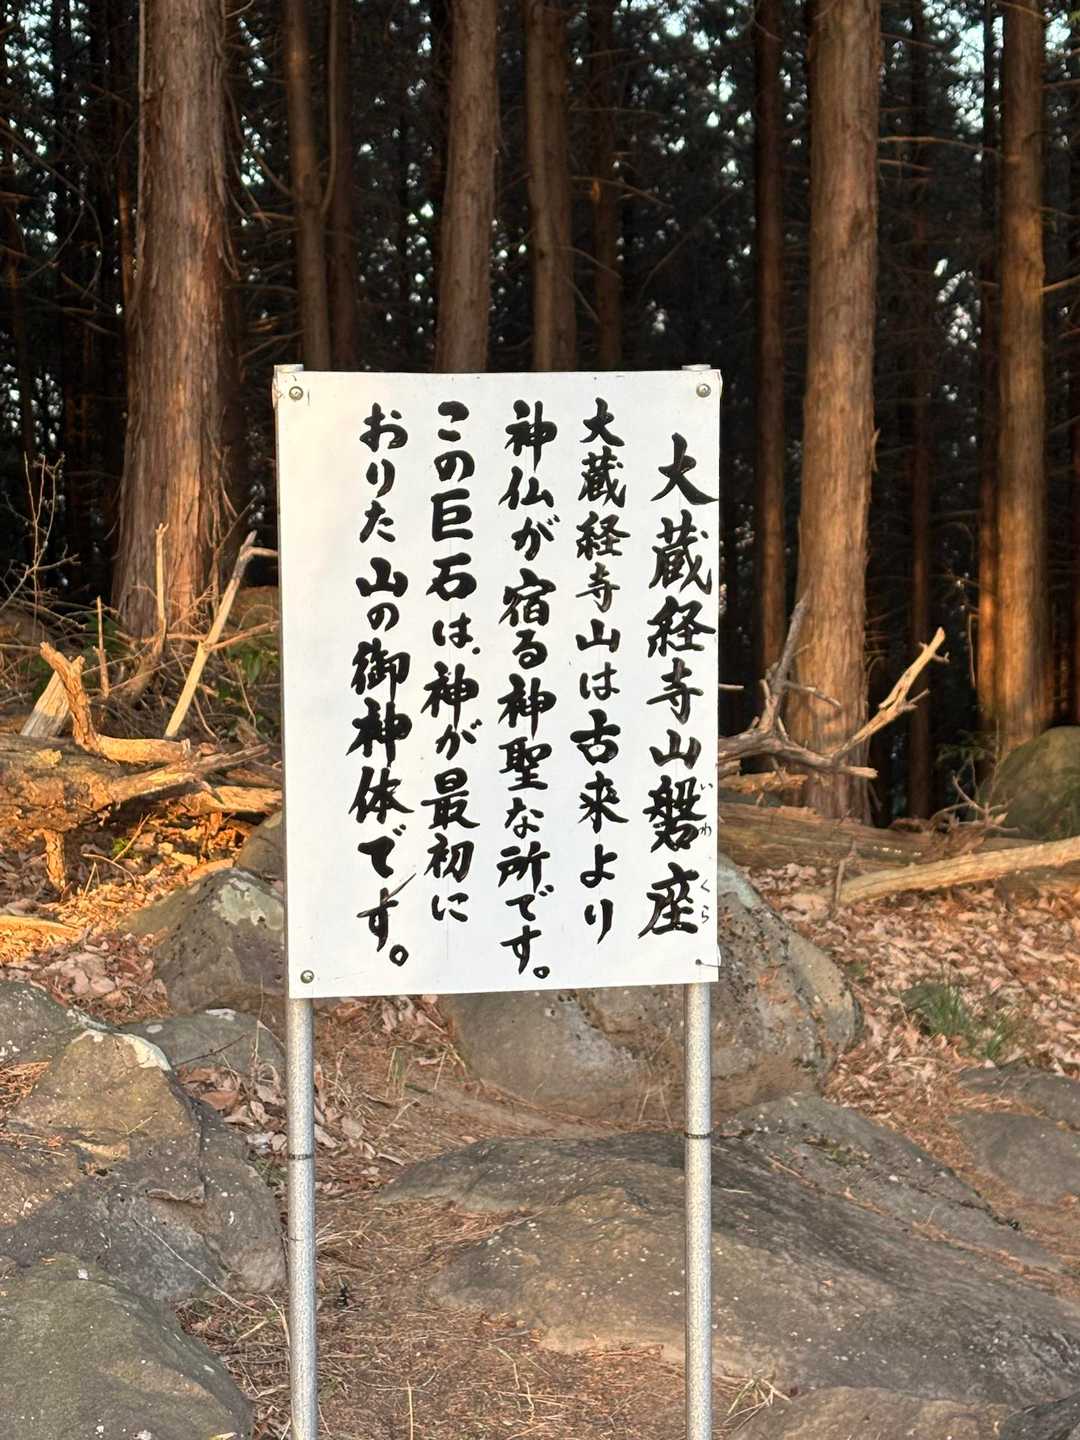 大蔵経寺山磐座
いわくら
大蔵経寺山は古来より
神仏が宿る神聖な所です。
この巨石は、神が最初に
おりた山の御神体です。